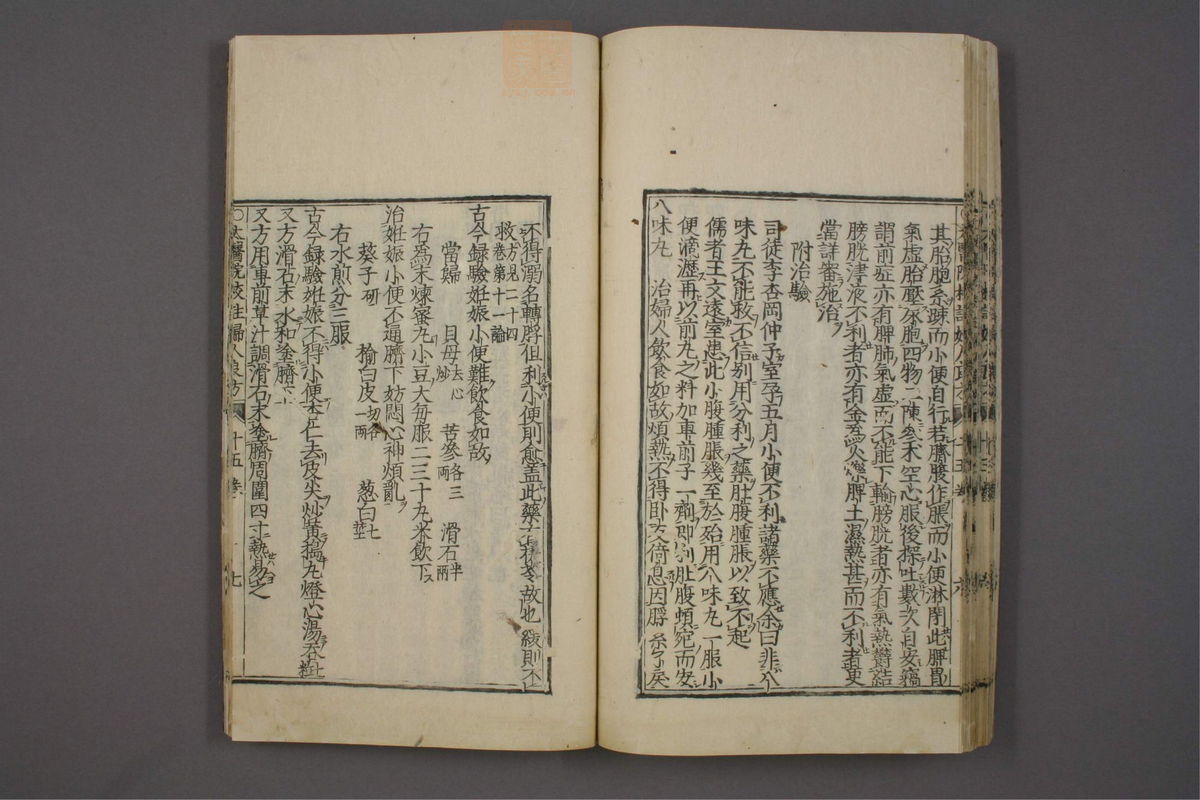 其胎胞系疎而小便自行若臍腹作脹而小便淋閉此脾胃
氣虛胎壓尿胞四物二陳參朮空心服後探吐數次自安竊
謂前症亦有脾肺氣虛而不能下輸膀胱者亦有氣熱鬱結
膀胱津液不利者亦有金為火爍脾土濕熱甚而不利者更
當詳審施治
附治驗
司徒李杏岡仲子室孕五月小便不利諸藥不應余曰非八
味丸不能救不信別用分利之藥肚腹腫脹以致不起
儒者王文遠室患此小腹腫脹幾至於殆用八味丸一服小
便滴瀝再以前丸之料加車前子一劑即利肚腹頓寬而安
八味丸 治婦人飲食如故煩熱不得卧反倚息因胞系了戾
不得溺名轉脬但利小便則愈蓋此藥有茯苓故也 緩則不
救 方見二十四卷第十一論
古今録驗妊娠小便難飲食如故
當歸 貝母去心炒 苦參各三兩 滑石半兩
右為末煉蜜丸小豆大每服二三十丸米飲下
治妊娠小便不通臍下妨悶心神煩亂
葵子研 榆白皮切各一兩 葱白七莖
右水煎分三服
古今録驗妊娠不得小便杏仁去皮尖炒黃搗丸燈心湯吞七粒
又方滑石末水和塗臍下
又方用車前草汁調滑石末塗臍周圍四寸熱易之
○太醫院校註婦人良方 十五卷 十七